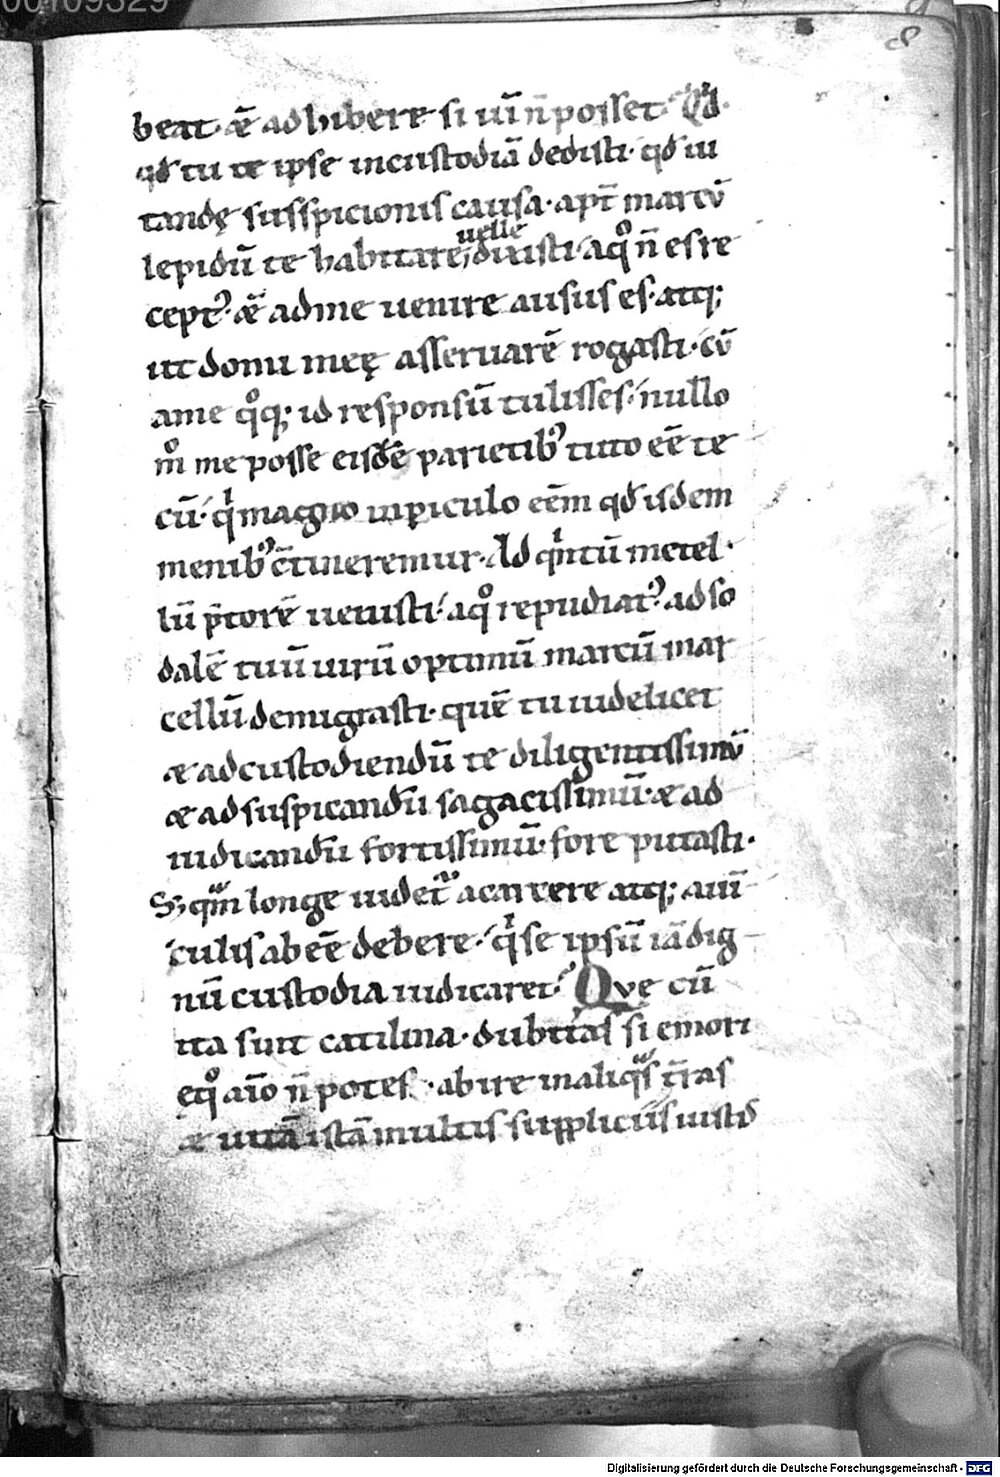 00109329
8
beat. ǣ adhibere si uī n̄ posset. Qd́.
qd́ tu te ipse incustodiā dedisti. qd́ ui
tandę susspicionis causa. apt̄ marcū
lepidū te habitare uelle dixisti. aqͦ n̄ es re
cept᾿. ǣ adme uenire ausus es. atq;
ut domi meę asseruarē rogasti. cū
ame qͦq; id responsū tulisses. nullo
mͦ me posse eisdē parietib᾿ tuto eē te
cū. qͥ magno inpiculo eēm qd́ isdem
menib᾿ c̄tineremur. Ad qͥntū metel.
lū p̄torē uenisti. aqͦ repudiat᾿. ad so
dalē tuū uirū optimū marcū mar
cellū demigrasti. quē tu uidelicet
æ adcustodiendū te diligentissimū
æ adsuspicandū sagacissimū. æ ad
iudicandū fortissimū. fore putasti.
S; qᵃm longe uidet᾿ acarcere atq; auin
culis abeē debere. qͥ se ipsū iā dig
nū custodia iudicaret. Qve cū
ita sint catilina. dubitas si emori
eqͦ aīo n̄ potes. abire inaliqᵃs t̄ras
æ uitā istā multis suppliciis iustis
Digitalisierung gefördert durch die Deutsche Forschungsgemeinschaft - DFG